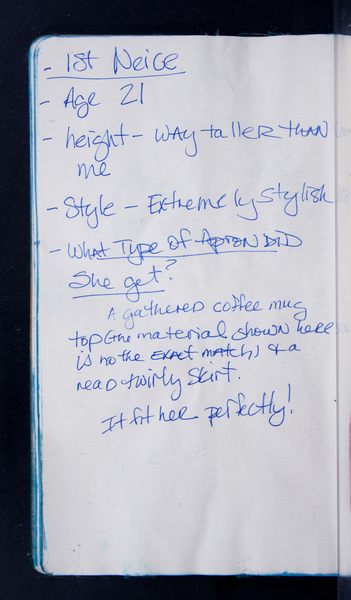 - 1st Neice
- Age 21
- height - WAY taller THAN
me
- Style - Extremely Stylish
- What Type of Apron DID
She get?
A gathered coffee mug
top (the material shown here
is no the EXACT match,) & a
read twirly skirt.
It fit her perfectly!